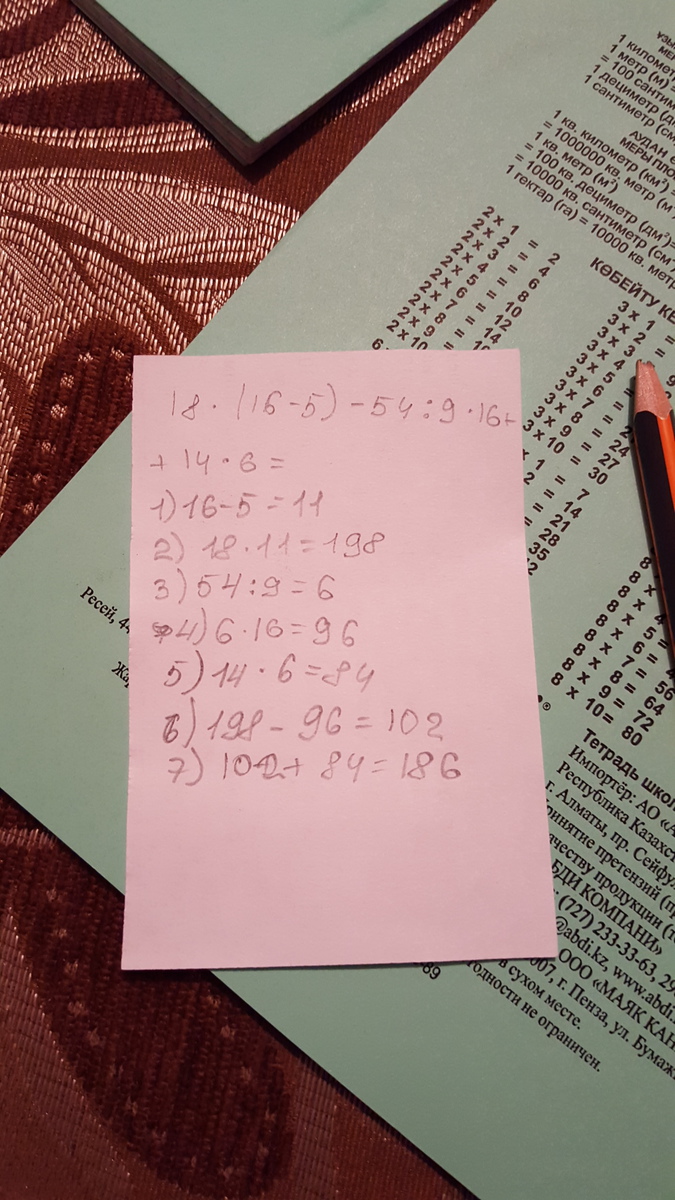 18 · (16-5) - 54 : 9 · 16 +
+ 14 · 6 =
1) 16-5 = 11
2) 18 · 11 = 198
3) 54 : 9 = 6
4) 6 · 16 = 96
5) 14 · 6 = 84
6) 198 - 96 = 102
7) 102 + 84 = 186
1 километр
1 метр (м) =
= 100 сантим
1 дециметр (д
1 сантиметр (см
АУДАН
МЕРЫ ПЛО
1 кв. километр (км²) =
= 1000000 кв. метр (м
1 кв. метр (м²)
= 100 кв. дециметр (дм²)=
= 10000 кв. сантиметр (см²
1 гектар (га) = 10000 кв. метр
КӨБЕЙТУ КЕ
2 x 1 = 2
2 x 2 = 4
2 x 3 = 6
2 x 4 = 8
2 x 5 = 10
2 x 6 = 12
2 x 7 = 14
2 x 8 =
2 x 9 =
2 x 10
3 x 1 =
3 x 2 =
3 x 3
3 x 4
3 x 5
3 x 6
3 x 7
3 x 8 = 24
3 x 9 = 27
3 x 10 = 30
x 1 = 7
2 = 14
= 21
28
35
8 x 4
8 x 5 =
8 x 6 = 4
8 x 7 = 56
8 x 8 = 64
8 x 9 = 72
8 x 10 = 80
Ресей, 44
Жар
®
Тетрадь шко
Импортёр: АО «А
Республика Казахст
г. Алматы, пр. Сейфу
ринятие претензий (пр
ачеству продукции (т
БДИ КОМПАНИ»
(727) 233-33-63, 29
@abdi.kz, www.abdi.
ООО «МАЯК КАН
007, г. Пенза, ул. Бумаж
в сухом месте.
одности не ограничен.
89